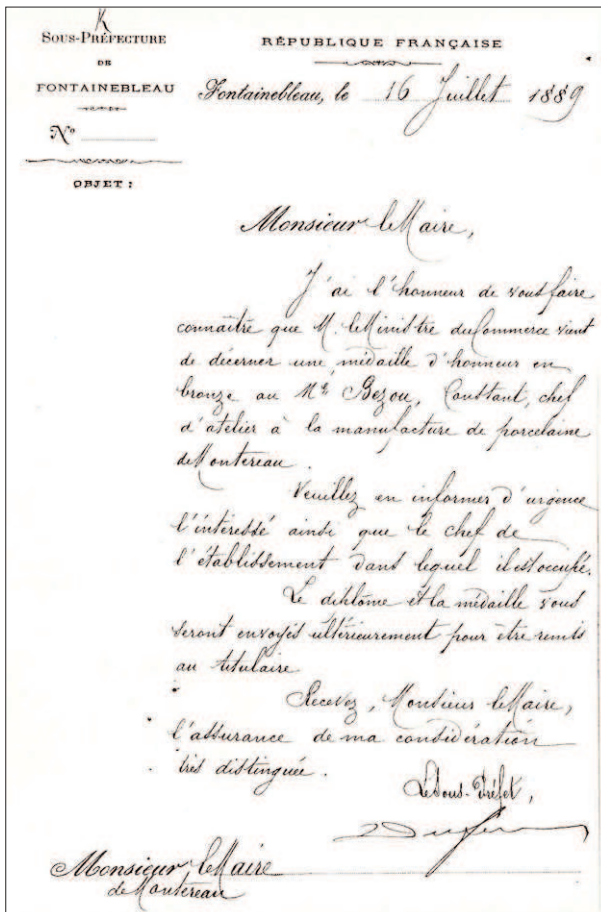 K
SOUS-PRÉFECTURE
DE
FONTAINEBLEAU
Nº
OBJET :
RÉPUBLIQUE FRANÇAISE
Fontainebleau, le 16 Juillet 1889
Monsieur le Maire,
J'ai l'honneur de vous faire
connaître que M. le Ministre du Commerce vient
de décerner une médaille d'honneur en
bronze au Mr Bezou, Constant, chef
d'atelier à la manufacture de porcelaine
de Montereau.
Veuillez en informer d'urgence
l'intéressé ainsi que le chef de
l'établissement dans lequel il est occupé.
Le diplôme et la médaille vous
seront envoyés ultérieurement pour être remis
au titulaire
Recevez, Monsieur le Maire,
l'assurance de ma considération
très distinguée.
Le Sous-Préfet,
Monsieur le Maire
de Montereau